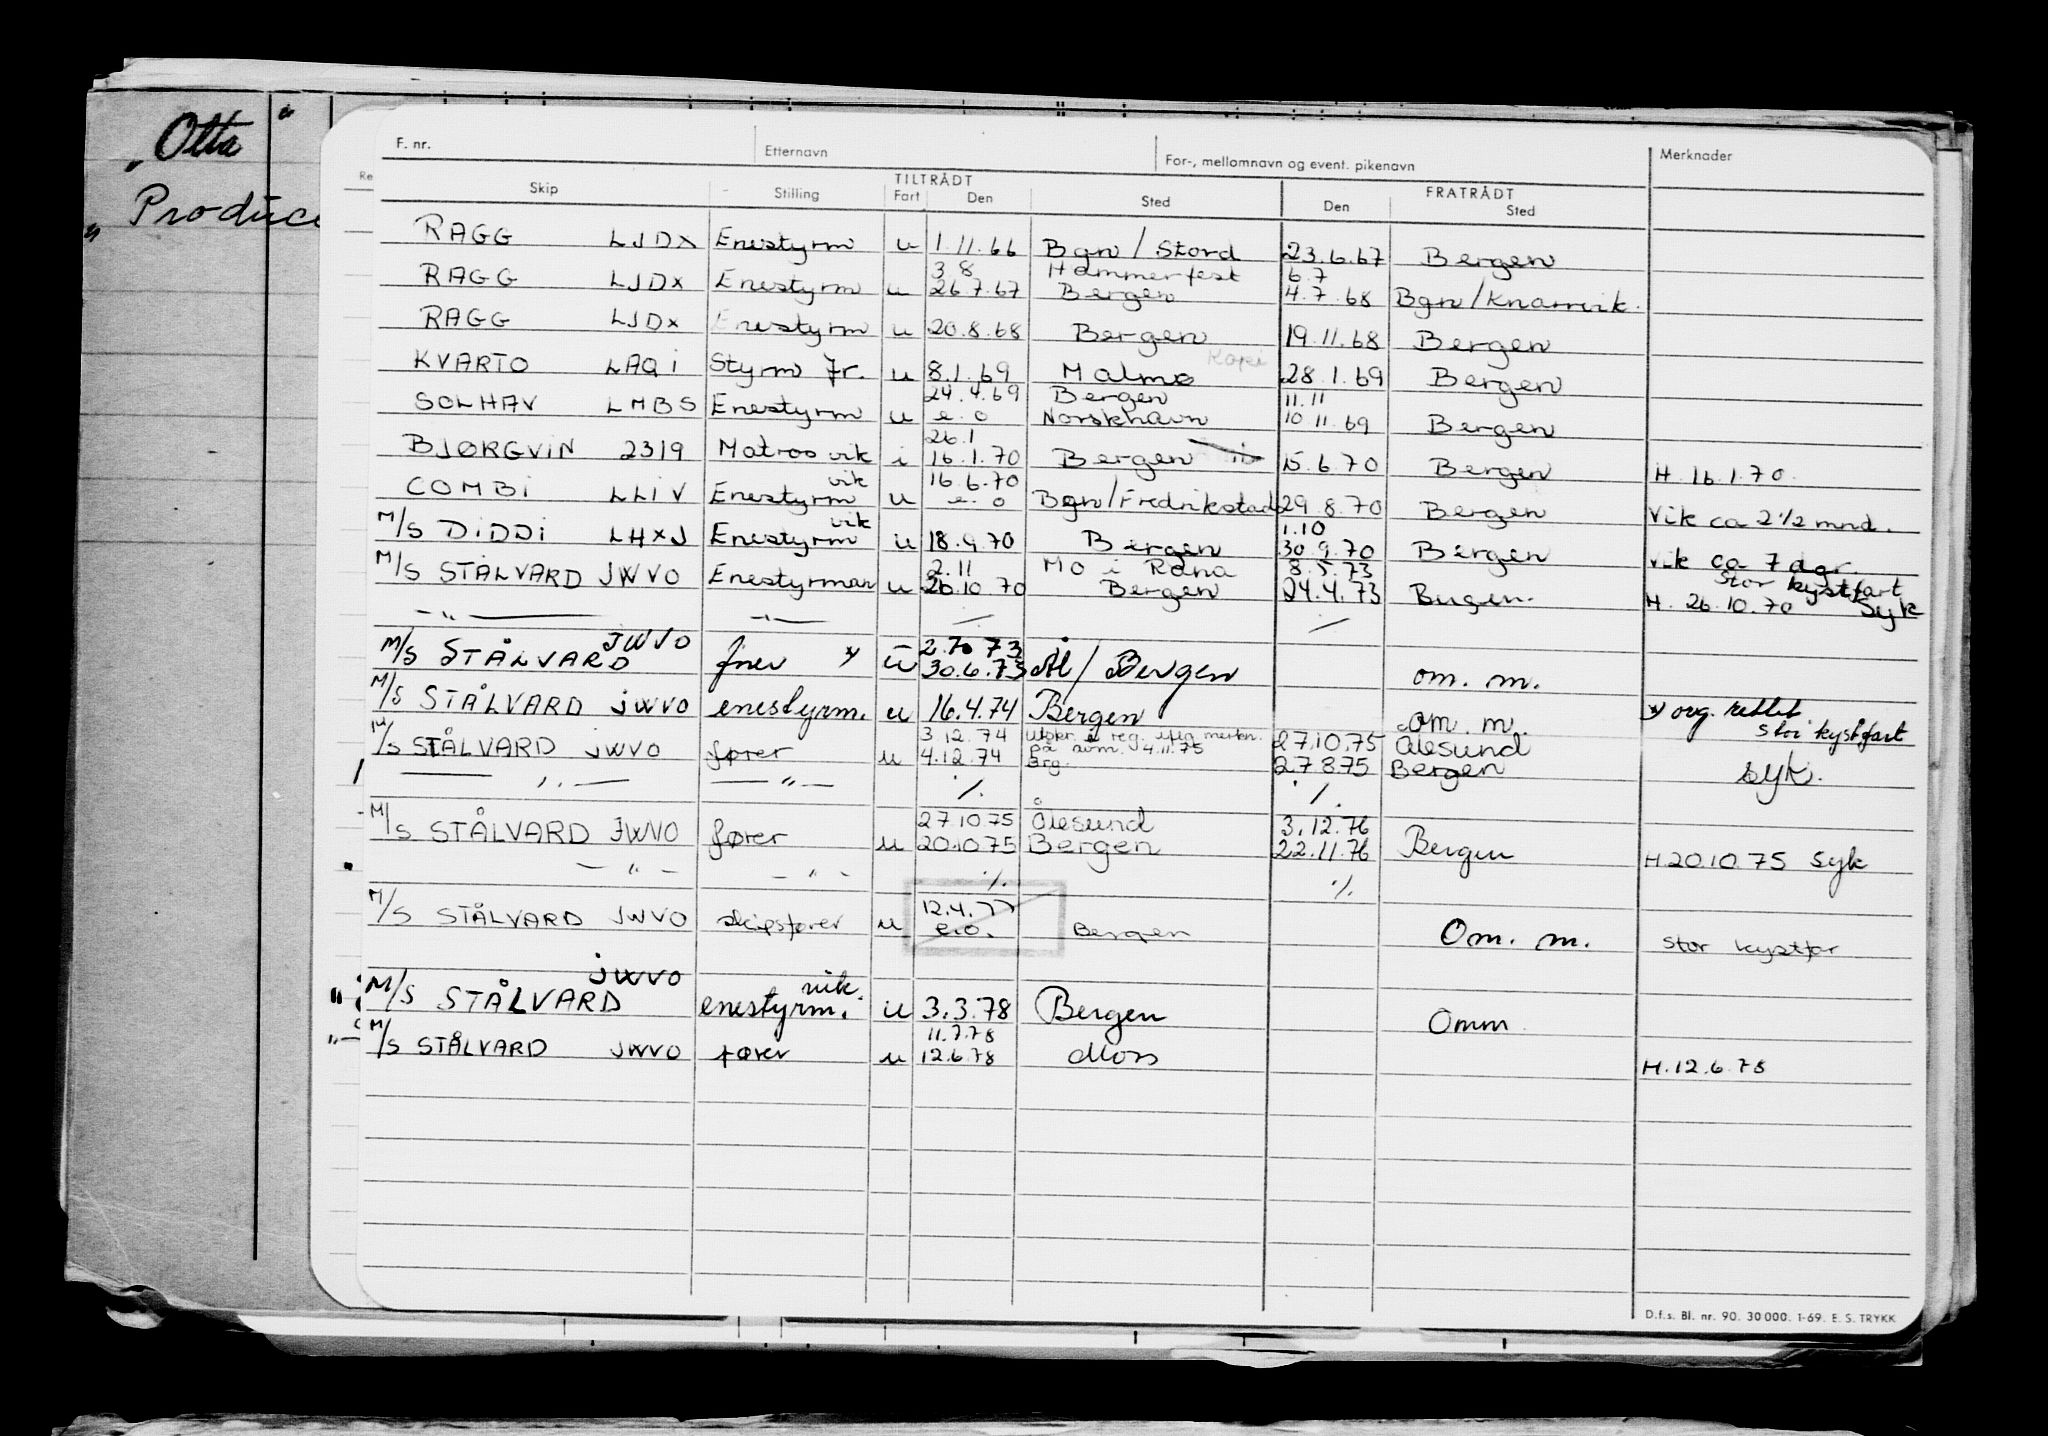 „Otta"
„Produce
F. nr. Etternavn For-, mellomnavn og event. pikenavn Merknader
TILTRÅDT FRATRÅDT
Skip Stilling Fart Den Sted Den Sted
RAGG LJDX Enestyrm u 1.11.66 Bgn/Stord 23.6.67 Bergen
3.8 Hammerfest 6.7
RAGG LJDX Enestyrm u 26.7.67 Bergen 4.7.68 Bgn/Knarrvik.
RAGG LJDX Enestyrm u 20.8.68 Bergen 19.11.68 Bergen
Kopi
KVARTO LAQI Styrm Jr. u 8.1.69 Malmø 28.1.69 Bergen
24.4.69 Bergen 11.11
SOLHAV LMBS Enestyrm u e.o Norskhavn 10.11.69 Bergen
26.1
BJØRGVIN 2319 Matros vik i 16.1.70 Bergen 15.6.70 Bergen H. 16.1.70.
vik 16.6.70
COMBI LLIV Enestyrm u e.o Bgn/Fredrikstad 29.8.70 Bergen Vik ca 2 1/2 mnd.
vik 1.10
M/S DIDDI LHXJ Enestyrm u 18.9.70 Bergen 30.9.70 Bergen Vik ca 7 dgr.
2.11 Mo i Rana 8.5.73 Stor kystfart
M/S STÅLVARD JWVO Enestyrman u 26.10.70 Bergen 24.4.73 Bergen. H. 26.10.70 Syk
— " — — " — / /
JWVO 2.7073
M/S STÅLVARD fører * u 30.6.73 Ål/Bergen om. m.
M/S STÅLVARD JWVO enestyrm. u 16.4.74 Bergen om. m. * ovg. rettet
Stor kystfart
3.12.74 utskr. i reg. efter merkn. 27.10.75 Ålesund
M/S STÅLVARD JWVO fører u 4.12.74 på avm. 4.11.75 Brg. 27.8.75 Bergen syk.
— " — — " — ./. ./.
27.10.75 Ålesund 3.12.76
M/S STÅLVARD JWVO fører u 20.10.75 Bergen 22.11.76 Bergen H.20.10.75 Syk
— " — — " — ./. ./.
12.4.77
M/S STÅLVARD JWVO skipsfører u e.o. Bergen Om. m. Stor kystfar
JWVO vik.
M/S STÅLVARD enestyrm. u 3.3.78 Bergen Omm
11.7.78
M/S STÅLVARD JWVO fører u 12.6.78 Moss H.12.6.78
D.f.s. Bl. nr. 90. 30 000. 1-69. E. S. TRYKK